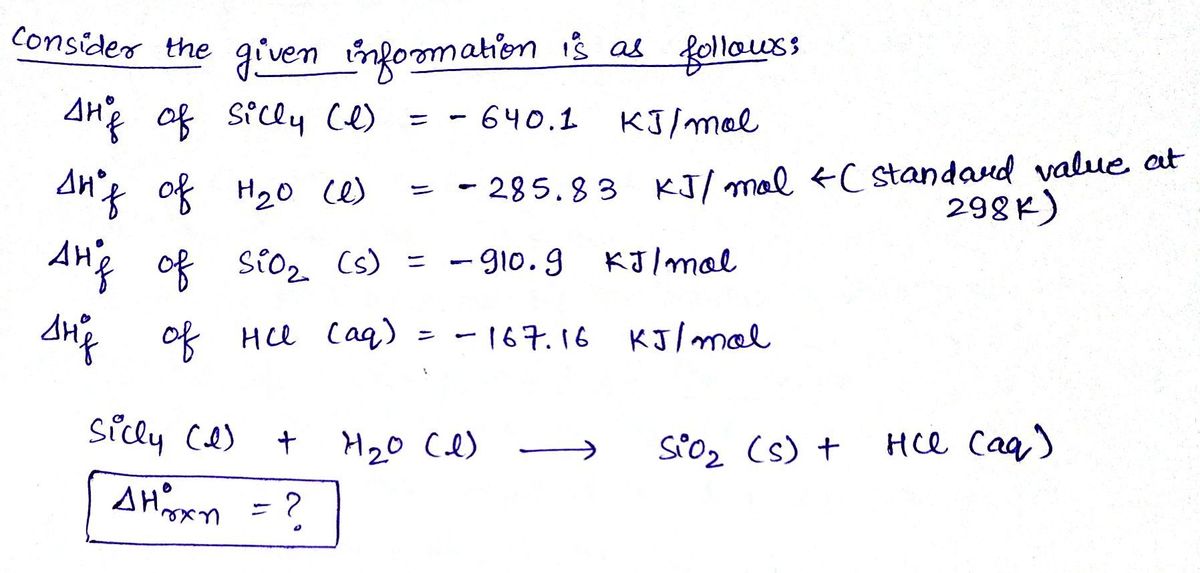 Consider the given information is as follows:
ΔH°f of SiCl4 (l) = - 640.1 KJ/mol
ΔH°f of H2O (l) = - 285.83 KJ/mol ← (standard value at 298K)
ΔH°f of SiO2 (s) = - 910.9 KJ/mol
ΔH°f of HCl (aq) = - 167.16 KJ/mol
SiCl4 (l) + H2O (l) ⟶ SiO2 (s) + HCl (aq)
ΔH°rxn = ?